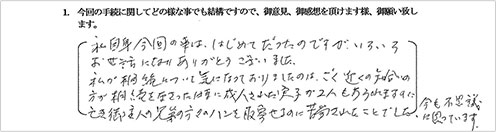 1. 今回の手続に関してどの様な事でも結構ですので、御意見、御感想を頂けます様、御願い致します。
私自身今回の事は、はじめてだったのですがいろいろ
お世話になりありがとうございました。
私が相続について気になっておりましたのは、ごく近くの知合いの
方が相続をなさった時に成人された実子が2人もあられますのに
亡き御主人の兄弟の方々のハンを取寄せるのに苦労されたことでした。
今も不思議
に思っています。